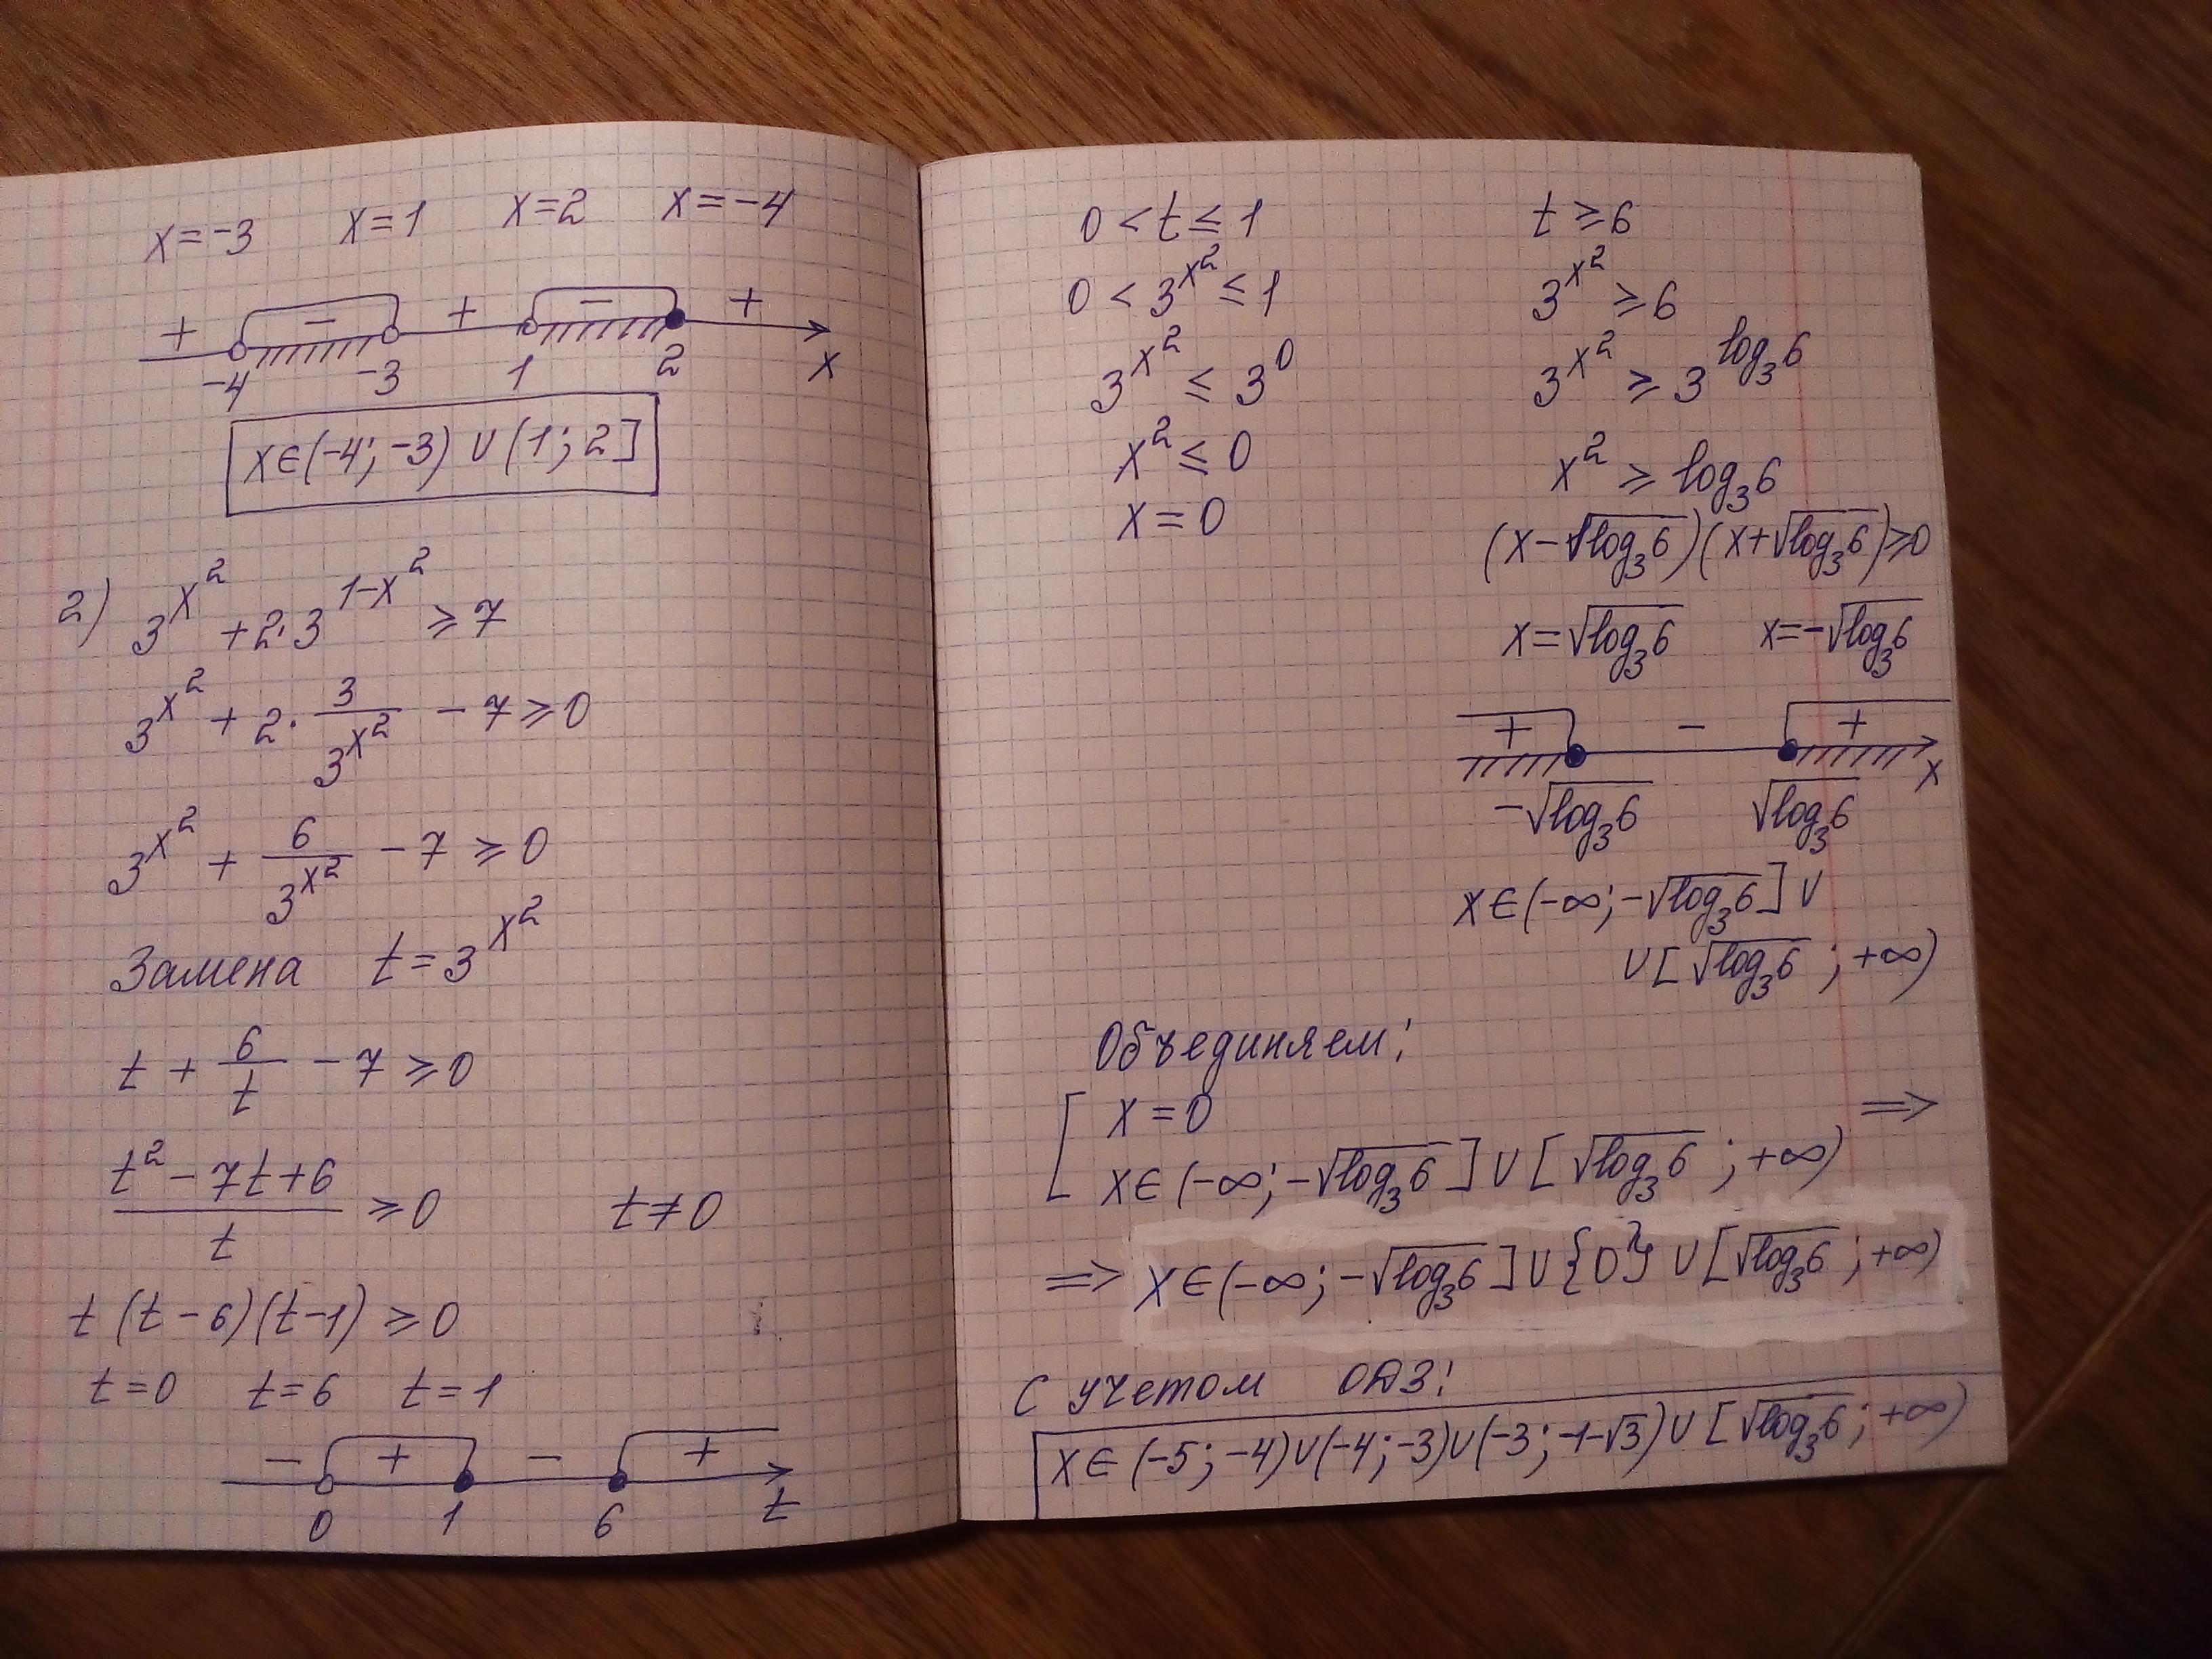 x=-3 x=1 x=2 x=-4
+ - + - +
-4 -3 1 2 x
x∈(-4;-3)∪(1;2]
2) 3^{x^2}+2·3^{1-x^2}⩾7
3^{x^2}+2·\frac{3}{3^{x^2}}-7⩾0
3^{x^2}+\frac{6}{3^{x^2}}-7⩾0
Замена t=3^{x^2}
t+\frac{6}{t}-7⩾0
\frac{t^2-7t+6}{t}⩾0 t≠0
t(t-6)(t-1)⩾0
t=0 t=6 t=1
- + - +
0 1 6 t
0<t≤1
0<3^{x^2}≤1
3^{x^2}≤3^0
x^2≤0
x=0
t⩾6
3^{x^2}⩾6
3^{x^2}⩾3^{log_3 6}
x^2⩾log_3 6
(x-√log_3 6)(x+√log_3 6)⩾0
x=√log_3 6 x=-√log_3 6
+ - +
-√log_3 6 √log_3 6 x
x∈(-∞;-√log_3 6]∪
∪[√log_3 6;+∞)
Объединяем:
[ x=0
x∈(-∞;-√log_3 6]∪[√log_3 6;+∞) ⇒
⇒ x∈(-∞;-√log_3 6]∪{0}∪[√log_3 6;+∞)
С учетом ОДЗ:
x∈(-5;-4)∪(-4;-3)∪(-3;-1-√3)∪[√log_3 6;+∞)